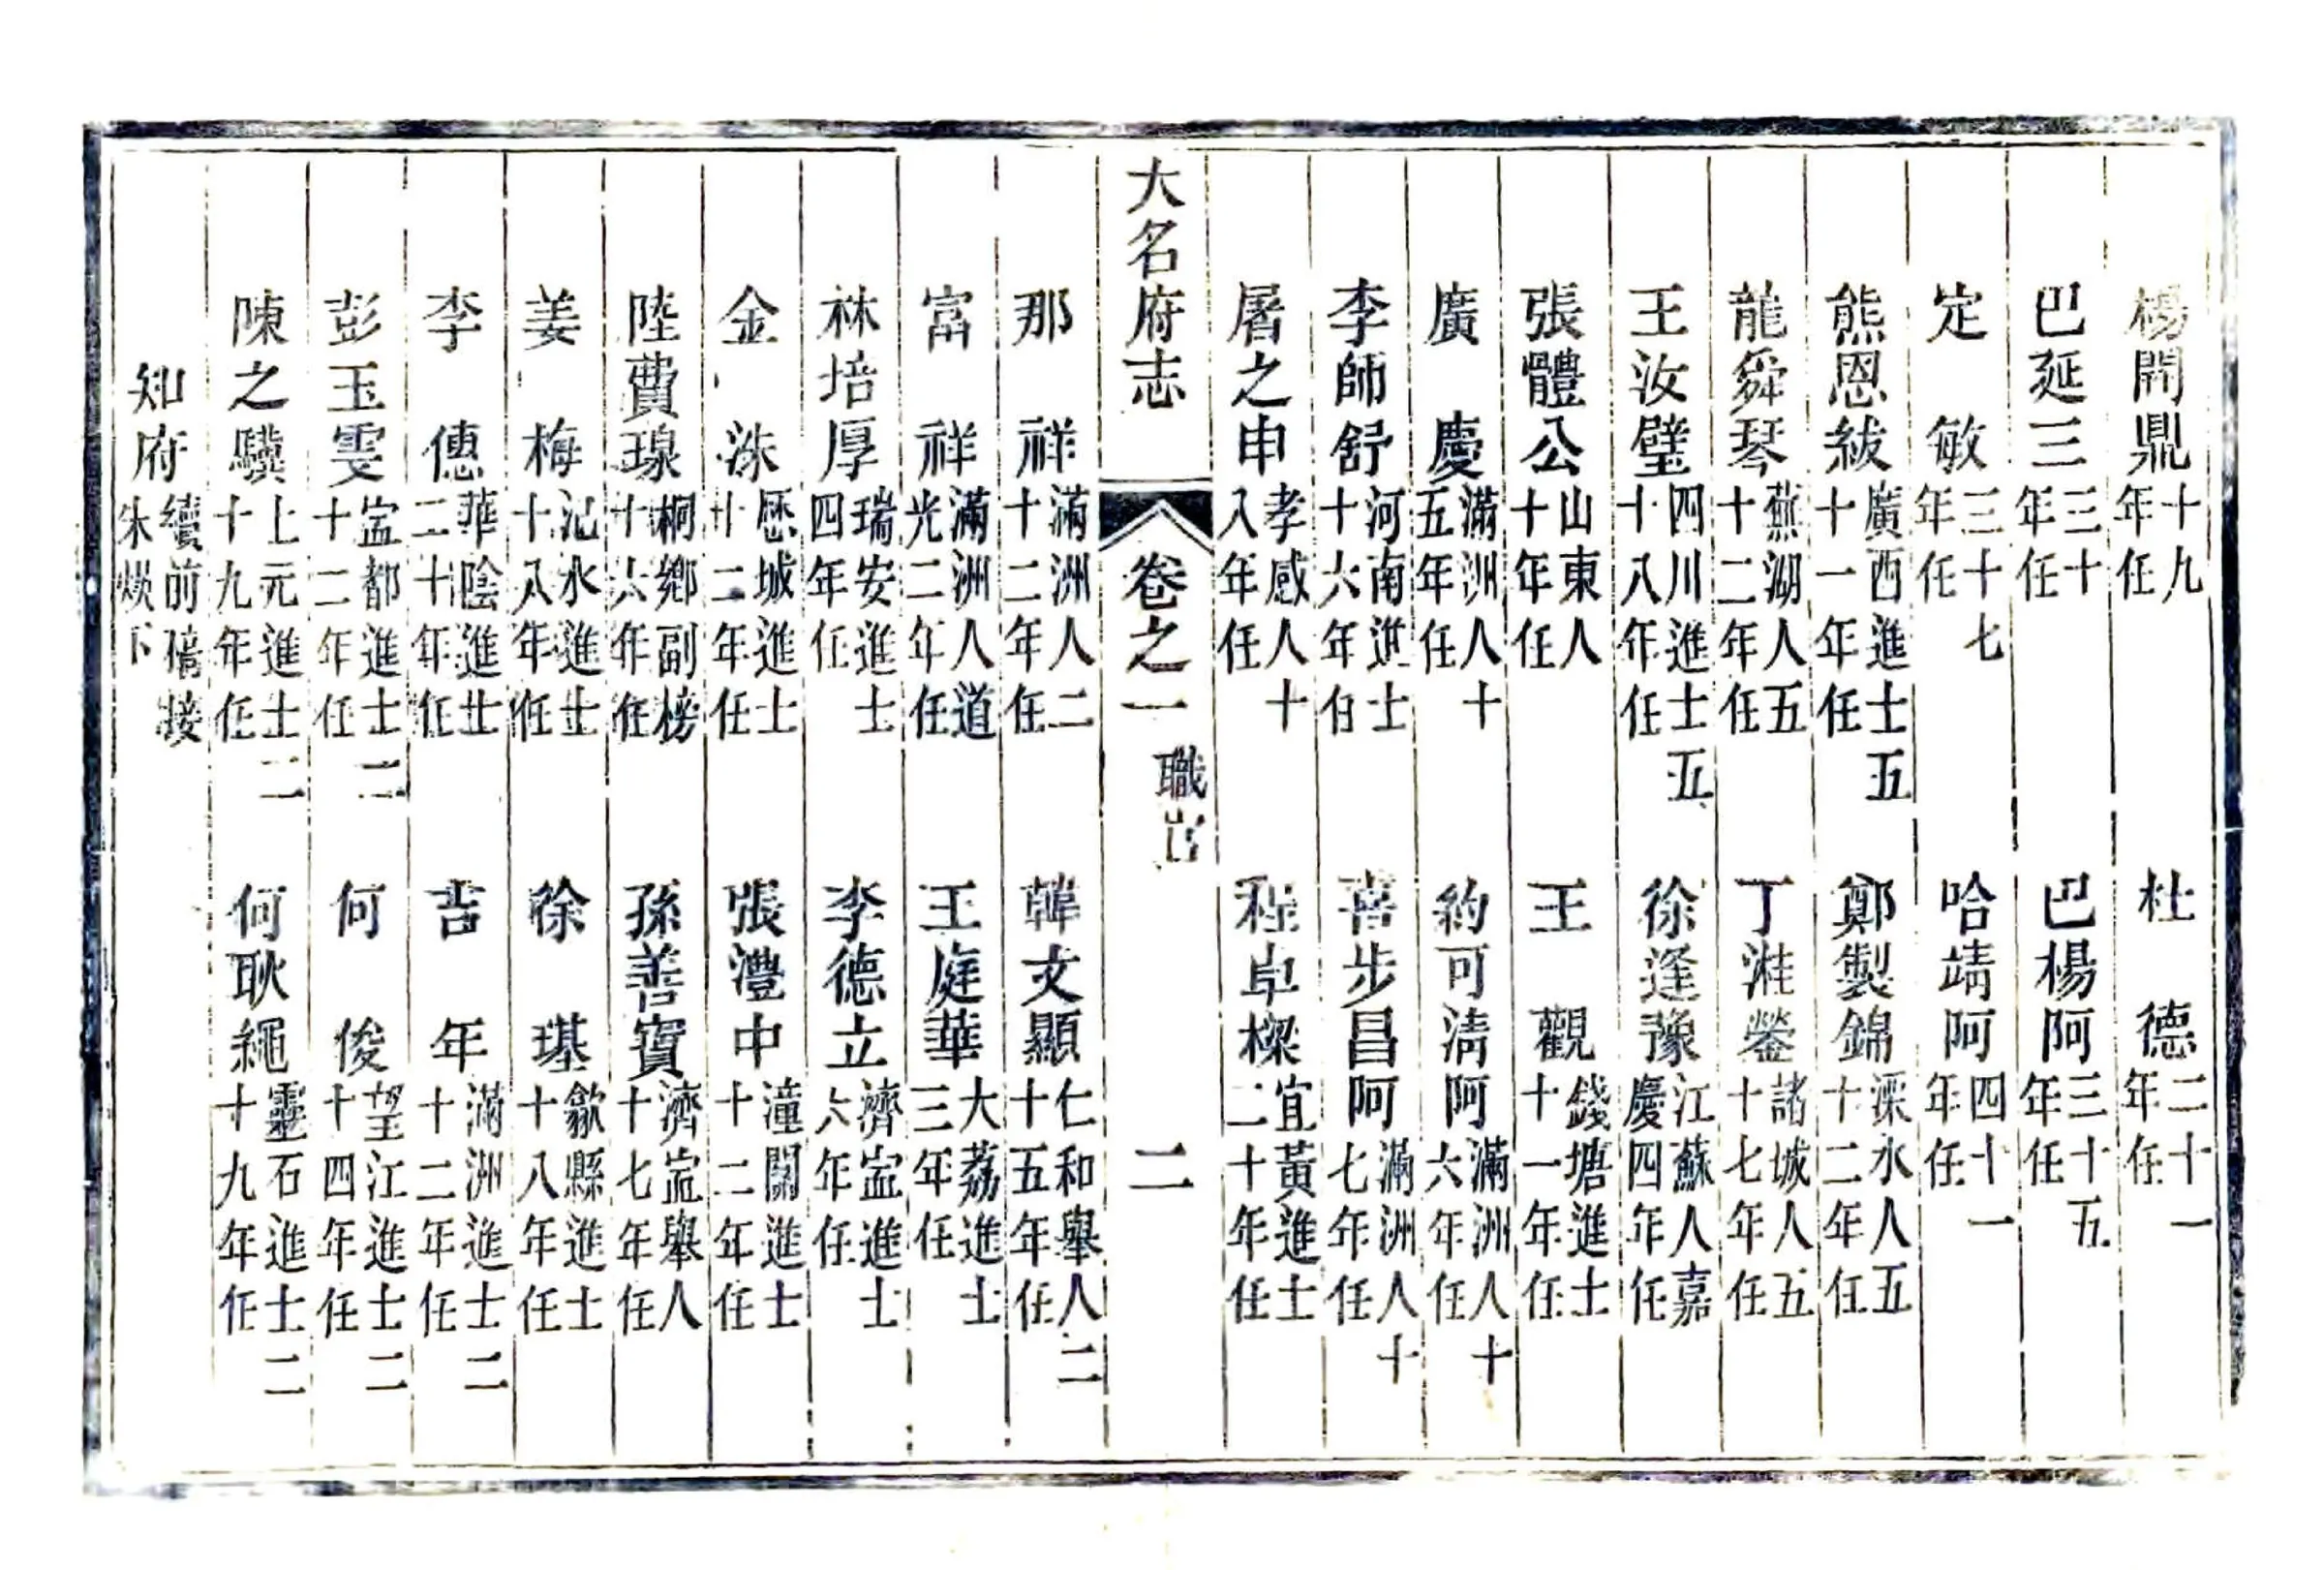 楊開鼎十九年任 杜德二十一年任
巴延三三十年任 巴楊阿三十五年任
定敏三十七年任 哈靖阿四十一年任
熊恩紱廣西進士五十一年任 鄭製錦溧水人五十二年任
龍舜琴蕪湖人五十二年任 丁溎鎣諸城人五十七年任
王汝璧四川進士五十八年任 徐逢豫江蘇人嘉慶四年任
張體公山東人十年任 王觀錢塘進士十一年任
廣慶滿洲人十五年任 約可清阿滿洲人十六年任
李師舒河南進士十六年任 喜步昌阿滿洲人十七年任
屠之申孝感人十八年任 程卓樑宜黃進士二十年任
大名府志 卷之一 職官 二
那祥滿洲人二十二年任 韓文顯仁和舉人二十五年任
富祥滿洲人道光二年任 王庭華大荔進士三年任
林培厚瑞安進士四年任 李德立濟寍進士六年任
金洙歷城進士十二年任 張灃中潼關進士十二年任
陸費瑔桐鄉副榜十六年任 孫善寶濟寍舉人十七年任
姜梅汜水進士十八年任 徐璂歙縣進士十八年任
李僡華陰進士二十年任 吉年滿洲進士二十二年任
彭玉雯寍都進士二十二年任 何俊望江進士二十四年任
陳之驥上元進士二十九年任 何耿繩靈石進士二十九年任
知府續前稿接朱煐下